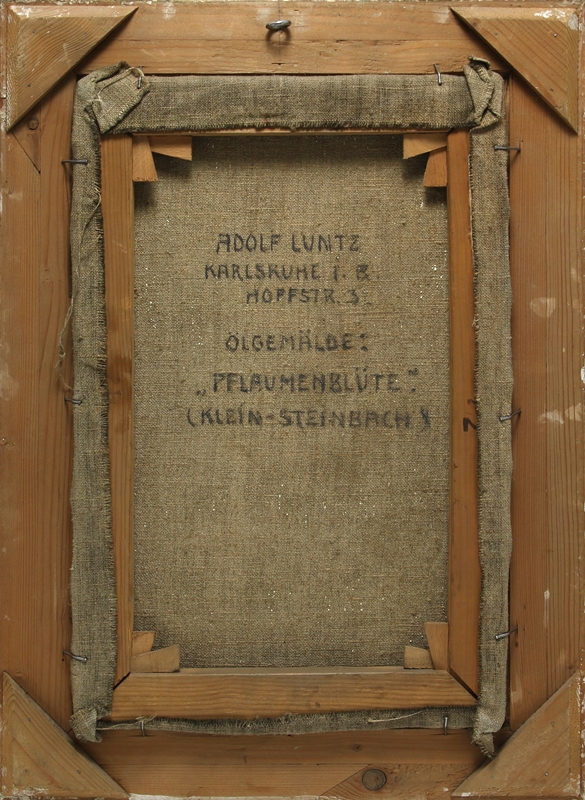 ADOLF LUNTZ
KARLSRUHE i. B.
HOFFSTR. 3.
ÖLGEMÄLDE:
„PFLAUMENBLÜTE".
(KLEIN-STEINBACH)